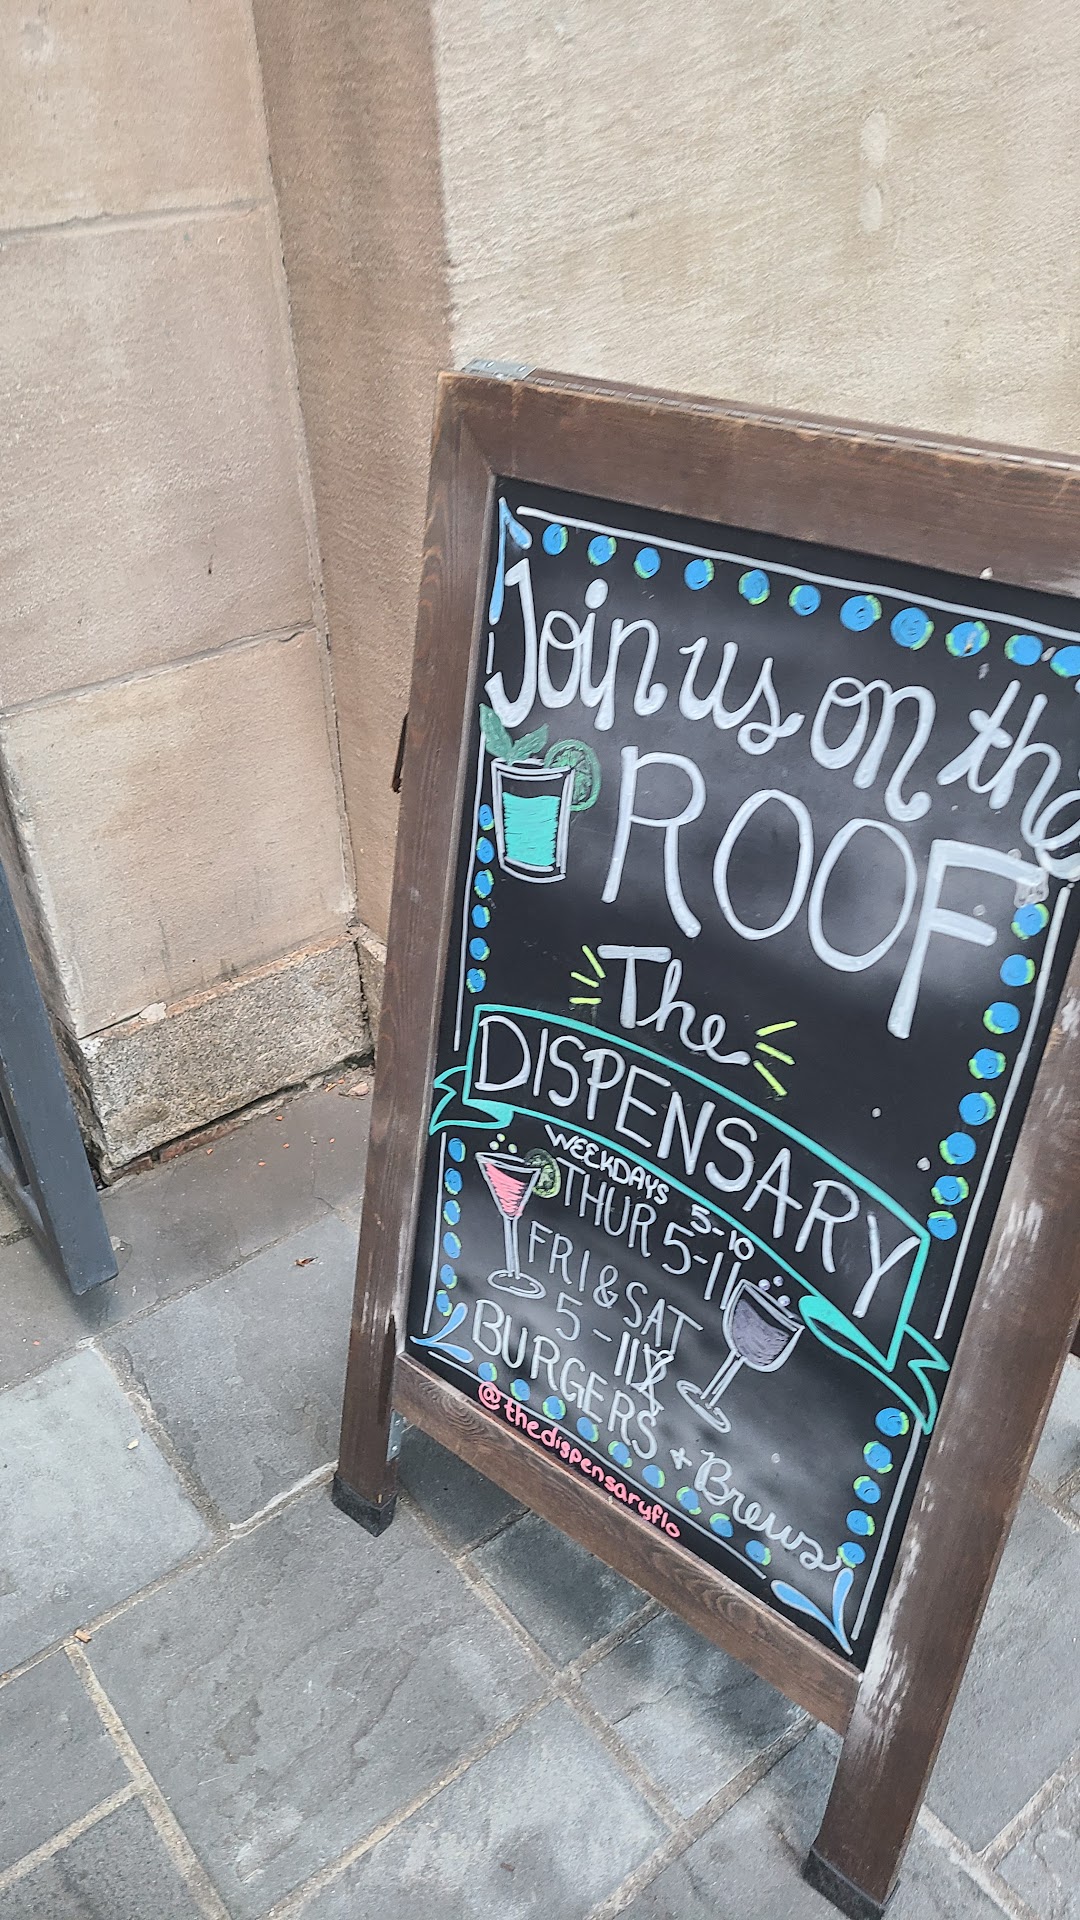 Join us on the
ROOF
The
DISPENSARY
WEEKDAYS 5-10
THUR 5-11
FRI & SAT
5-11
BURGERS + Brews
@thedispensaryflo